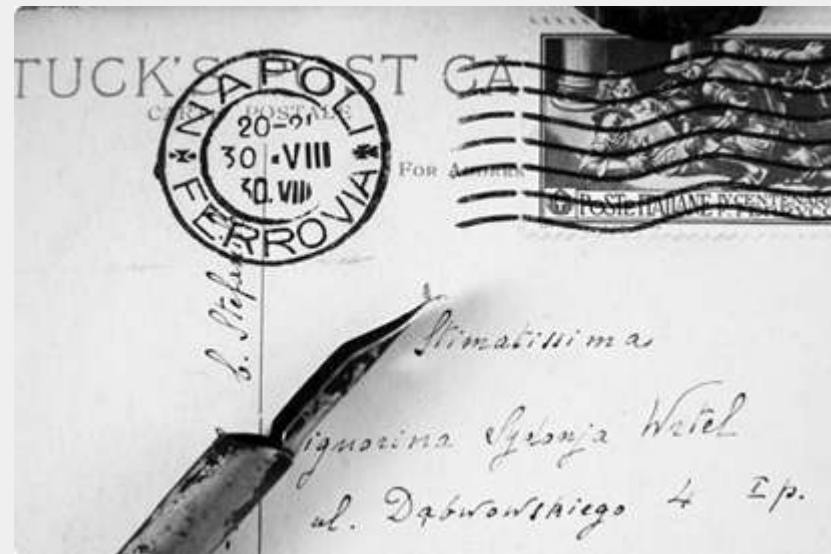 TUCK'S POST CA
CARTE POSTALE
FOR ADDRES
NAPOLI
20-21
30 • VIII
30. VIII
FERROVIA
POSTE ITALIANE IV CENTENARIO
Stimatissima
ignorina Sydonja Wrtel
ul. Dąbrowskiego 4 I p.